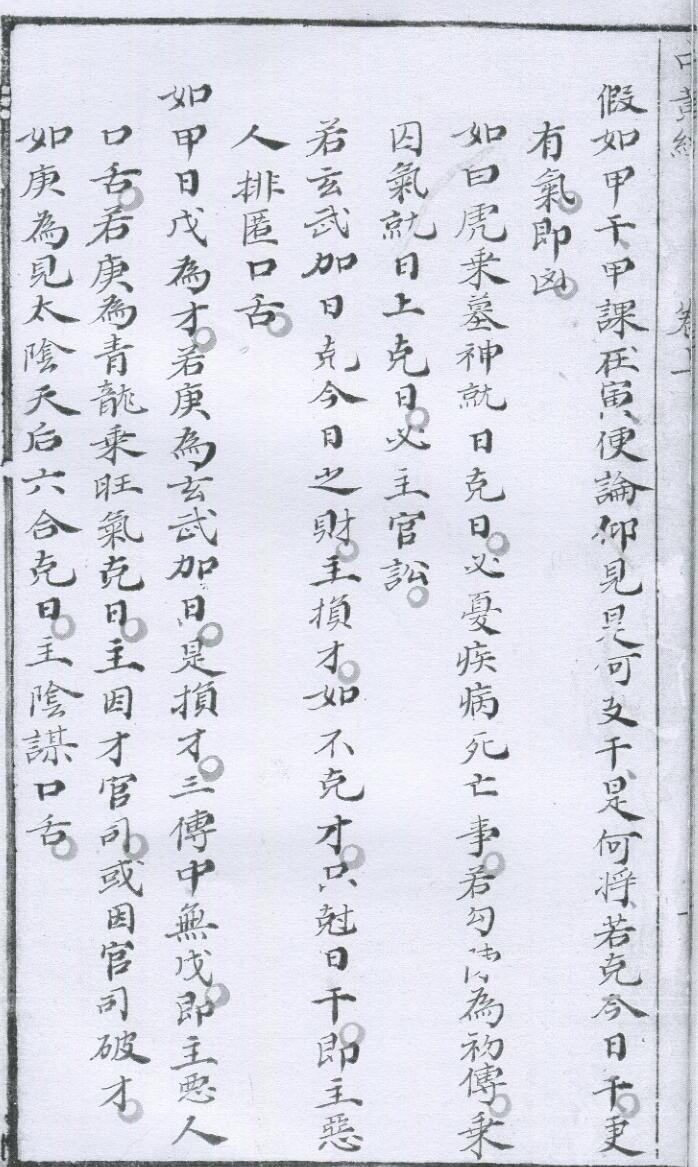 假如甲干甲課在寅便論仰見是何支干是何將若克今日干更
有氣即凶
如白虎乘墓神就日克日必憂疾病死亡事若勾陳為初傳乘
囚氣就日上克日必主官訟
若玄武加日克今日之財主損才如不克才只尅日干即主惡
人排匿口舌
如甲日戊為才若庚為玄武加日是損才三傳中無戊即主惡人
口舌若庚為青龍乘旺氣克日主因才官司或因官司破才
如庚為見太陰天后六合克日主陰謀口舌